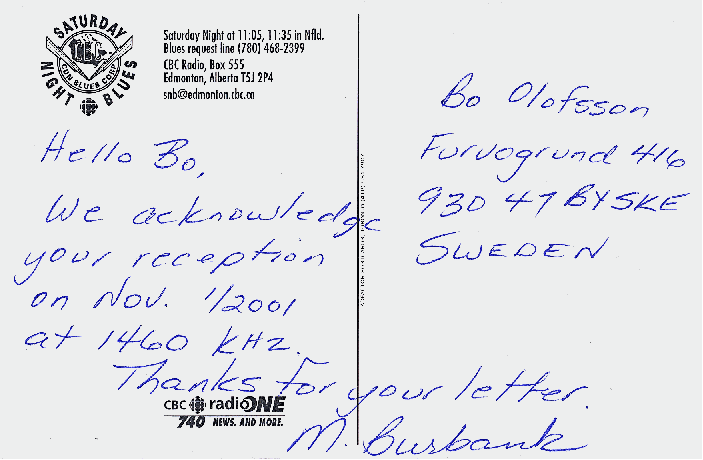 SATURDAY
NIGHT BLUES
CBC
CDN BLUES CORP
Saturday Night at 11:05, 11:35 in Nfld.
Blues request line (780) 468-2399
CBC Radio, Box 555
Edmonton, Alberta T5J 2P4
snb@edmonton.cbc.ca
Hello Bo,
We acknowledge
your reception
on Nov. 1/2001
at 1460 KHz.
Thanks for your letter.
M. Burbank
CBC radioONE
740 NEWS. AND MORE.
Bo Olofsson
Furuogrund 416
930 47 BYSKE
SWEDEN